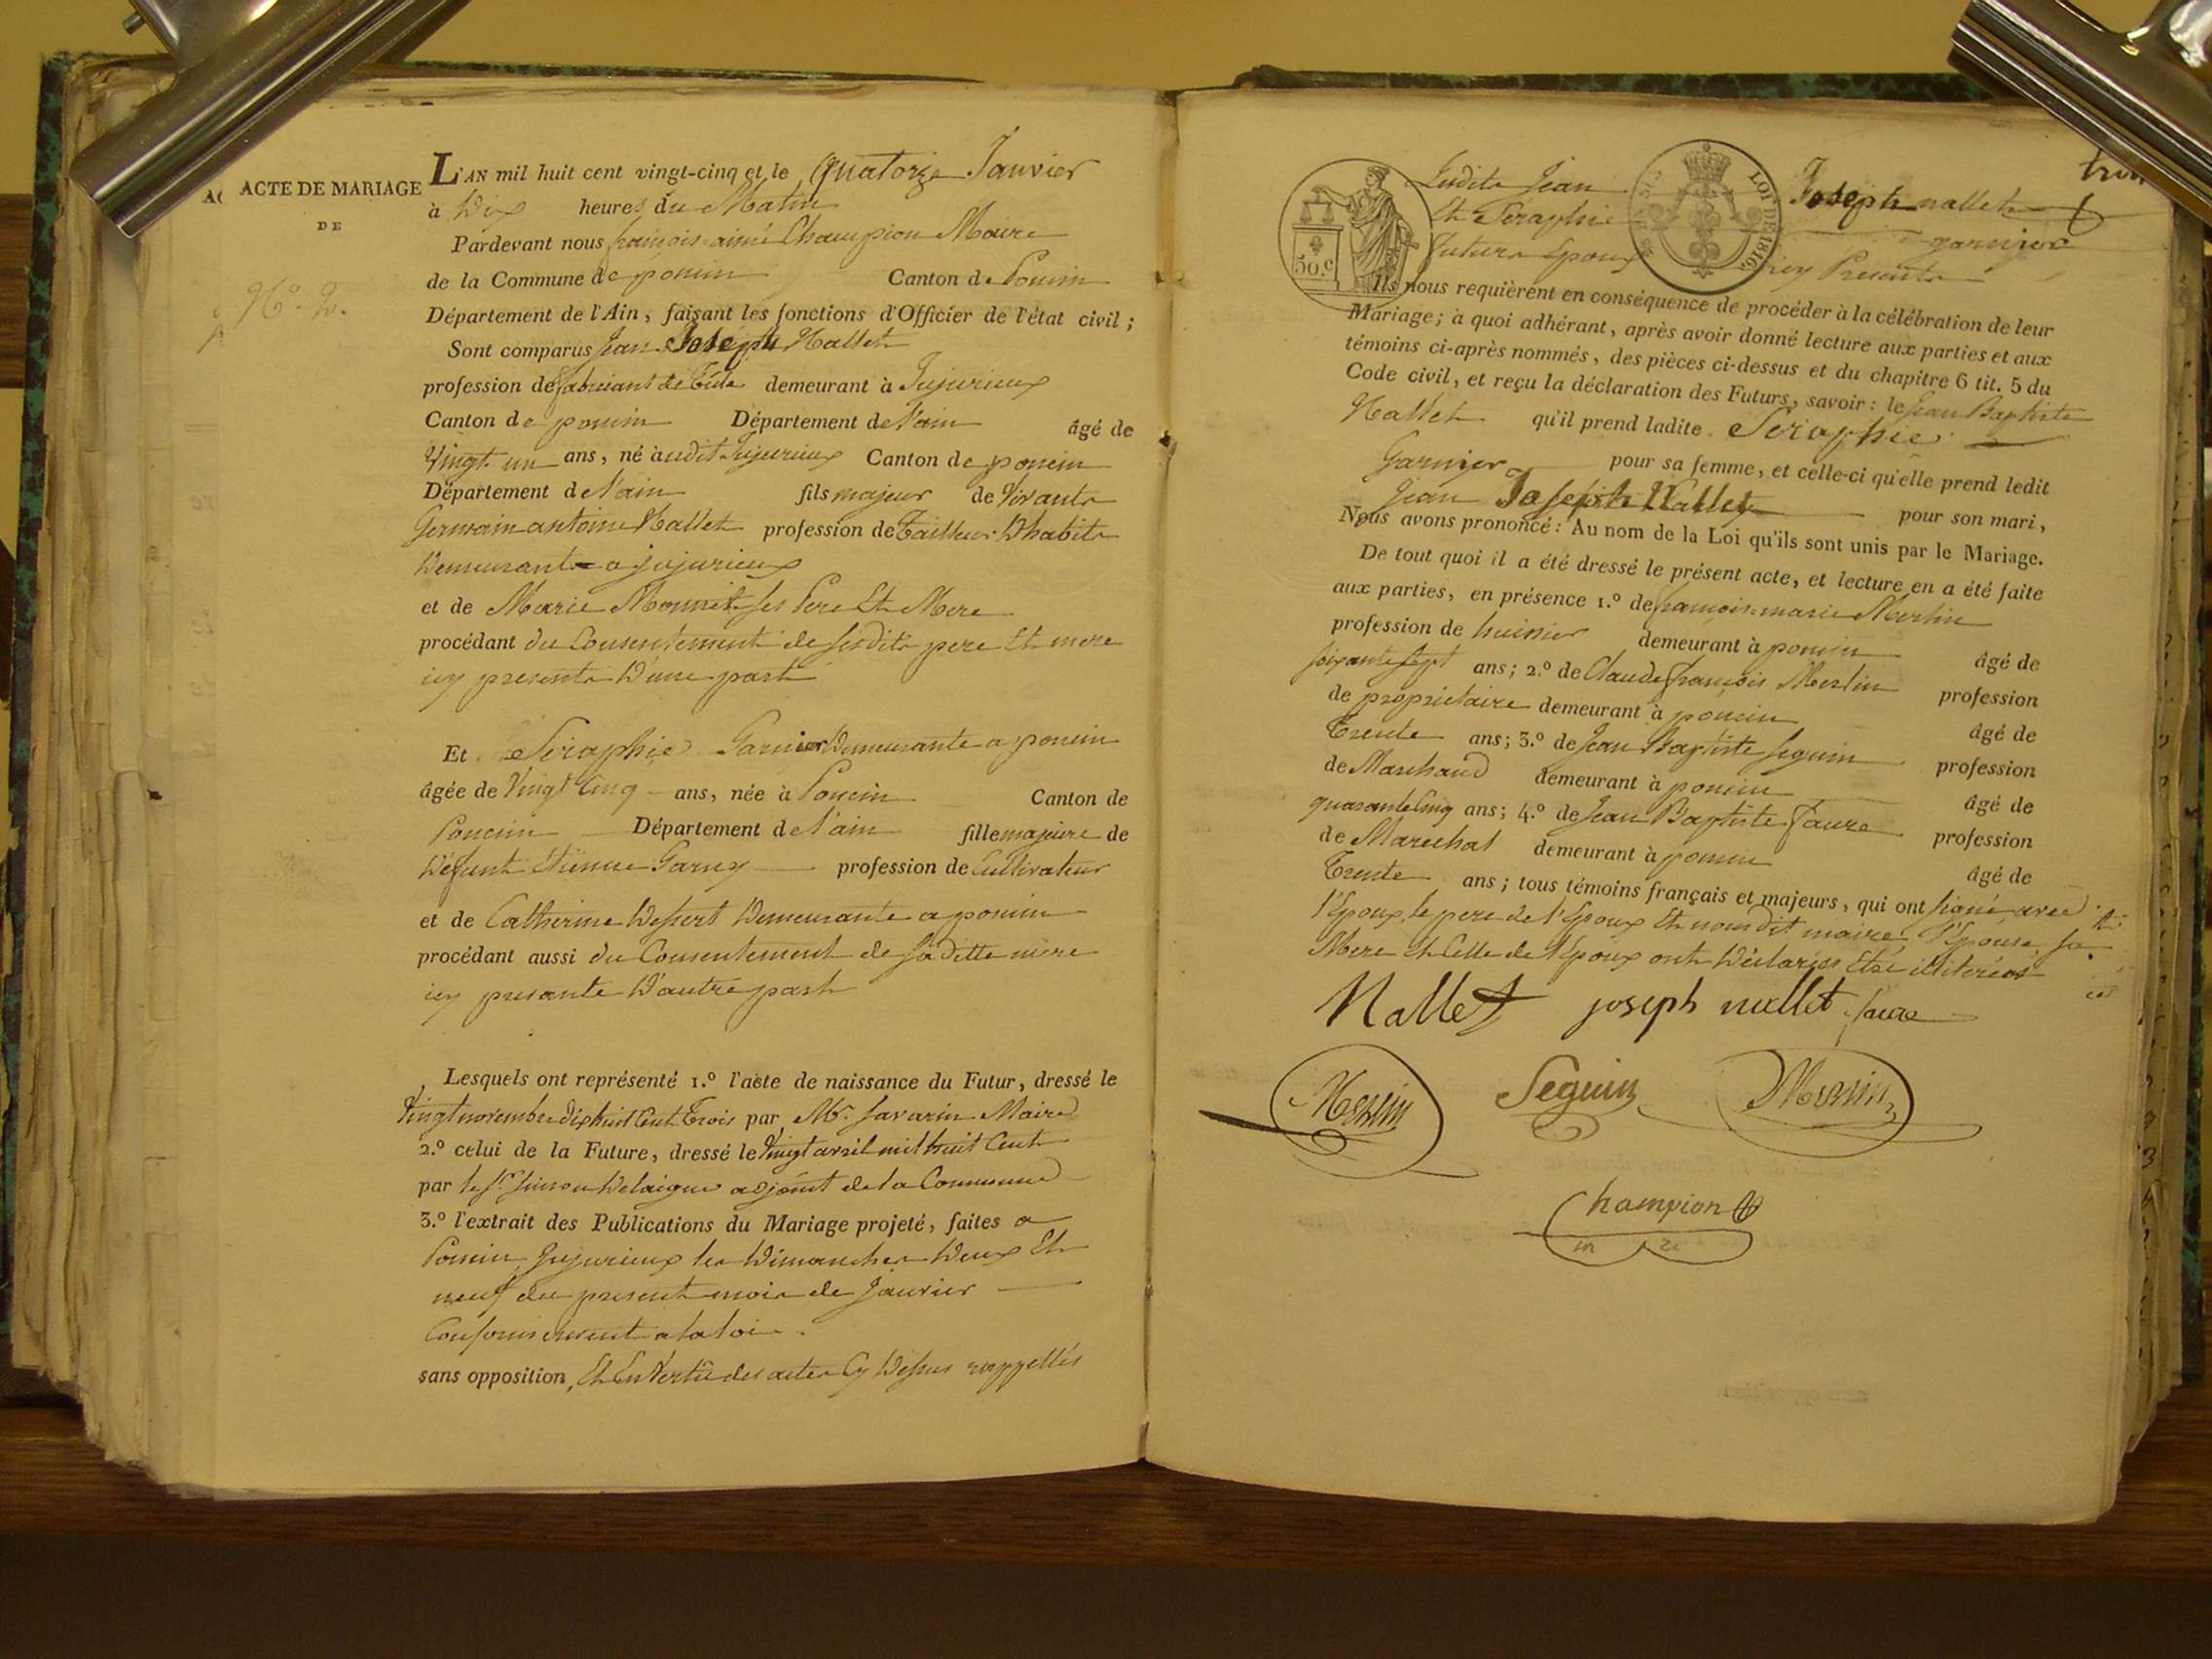 ACTE DE MARIAGE
DE
N.º 2.
L'AN mil huit cent vingt-cinq et le quatorze Janvier
à Dix heures du Matin
Pardevant nous françois aimé Champion Maire
de la Commune de poncin Canton de Poncin
Département de l'Ain, faisant les fonctions d'Officier de l'état civil;
Sont comparus Jean Joseph Nallet
profession de fabricant de Toile demeurant à Jujurieux
Canton de poncin Département de l'ain âgé de
Vingt un ans, né audit Jujurieux Canton de poncin
Département de l'ain fils majeur de Vivants
Germain antoine Nallet profession de Tailleur D'habits
Demeurants a jujurieux
et de Marie Monnet ses Pere Et Mere
procédant du Consentement de sesdits pere Et mere
icy presents D'une part
Et Séraphie Garnier Demeurante a poncin
âgée de Vingt Cinq ans, née à Poncin Canton de
Poncin Département de l'ain fille majeure de
Défunt Étienne Garny profession de Cultivateur
et de Catherine Dessert Demeurante a poncin
procédant aussi du Consentement de saditte mère
icy presante D'autre part
Lesquels ont représenté 1.º l'acte de naissance du Futur, dressé le
Vingt novembre dix huit Cent Trois par Mr. Savarin Maire
2.º celui de la Future, dressé le Vingt avril mil huit Cent
par le Sr. adjoint de la Commune
3.º l'extrait des Publications du Mariage projeté, faites a
Poncin Jujurieux les Dimanches Deux Et
neuf du present mois de Janvier
Conformément a la loi.
sans opposition, Et En Vertu des actes Cy Dessus rappellés
50.C
LOI DE 1816
Lesdits Jean Joseph nallet
Et Séraphie garnier
futurs Epoux icy Presents
Ils nous requièrent en conséquence de procéder à la célébration de leur
Mariage; à quoi adhérant, après avoir donné lecture aux parties et aux
témoins ci-après nommés, des pièces ci-dessus et du chapitre 6 tit. 5 du
Code civil, et reçu la déclaration des Futurs, savoir: le Jean Baptiste
Nallet qu'il prend ladite Séraphie
Garnier pour sa femme, et celle-ci qu'elle prend ledit
Jean Joseph Nallet pour son mari,
Nous avons prononcé: Au nom de la Loi qu'ils sont unis par le Mariage.
De tout quoi il a été dressé le présent acte, et lecture en a été faite
aux parties, en présence 1.º de françois-marie Merlin
profession de huissier demeurant à poncin âgé de
soixante sept ans; 2.º de Claude françois Merlin profession
de propriétaire demeurant à poncin âgé de
Trente ans; 3.º de Jean Baptiste Seguin profession
de Marchand demeurant à poncin âgé de
quarante Cinq ans; 4.º de Jean Baptiste Faure profession
de Marechal demeurant à poncin âgé de
Trente ans; tous témoins français et majeurs, qui ont signé avec
l'Epoux, le pere de l'Epoux Et nousdit maire, l'Epouse, sa
Mere Et Celle de l'Epoux ont Déclarées Etre illiterées
Nallet joseph nallet faure
Merlin Seguin Merlin
Champion